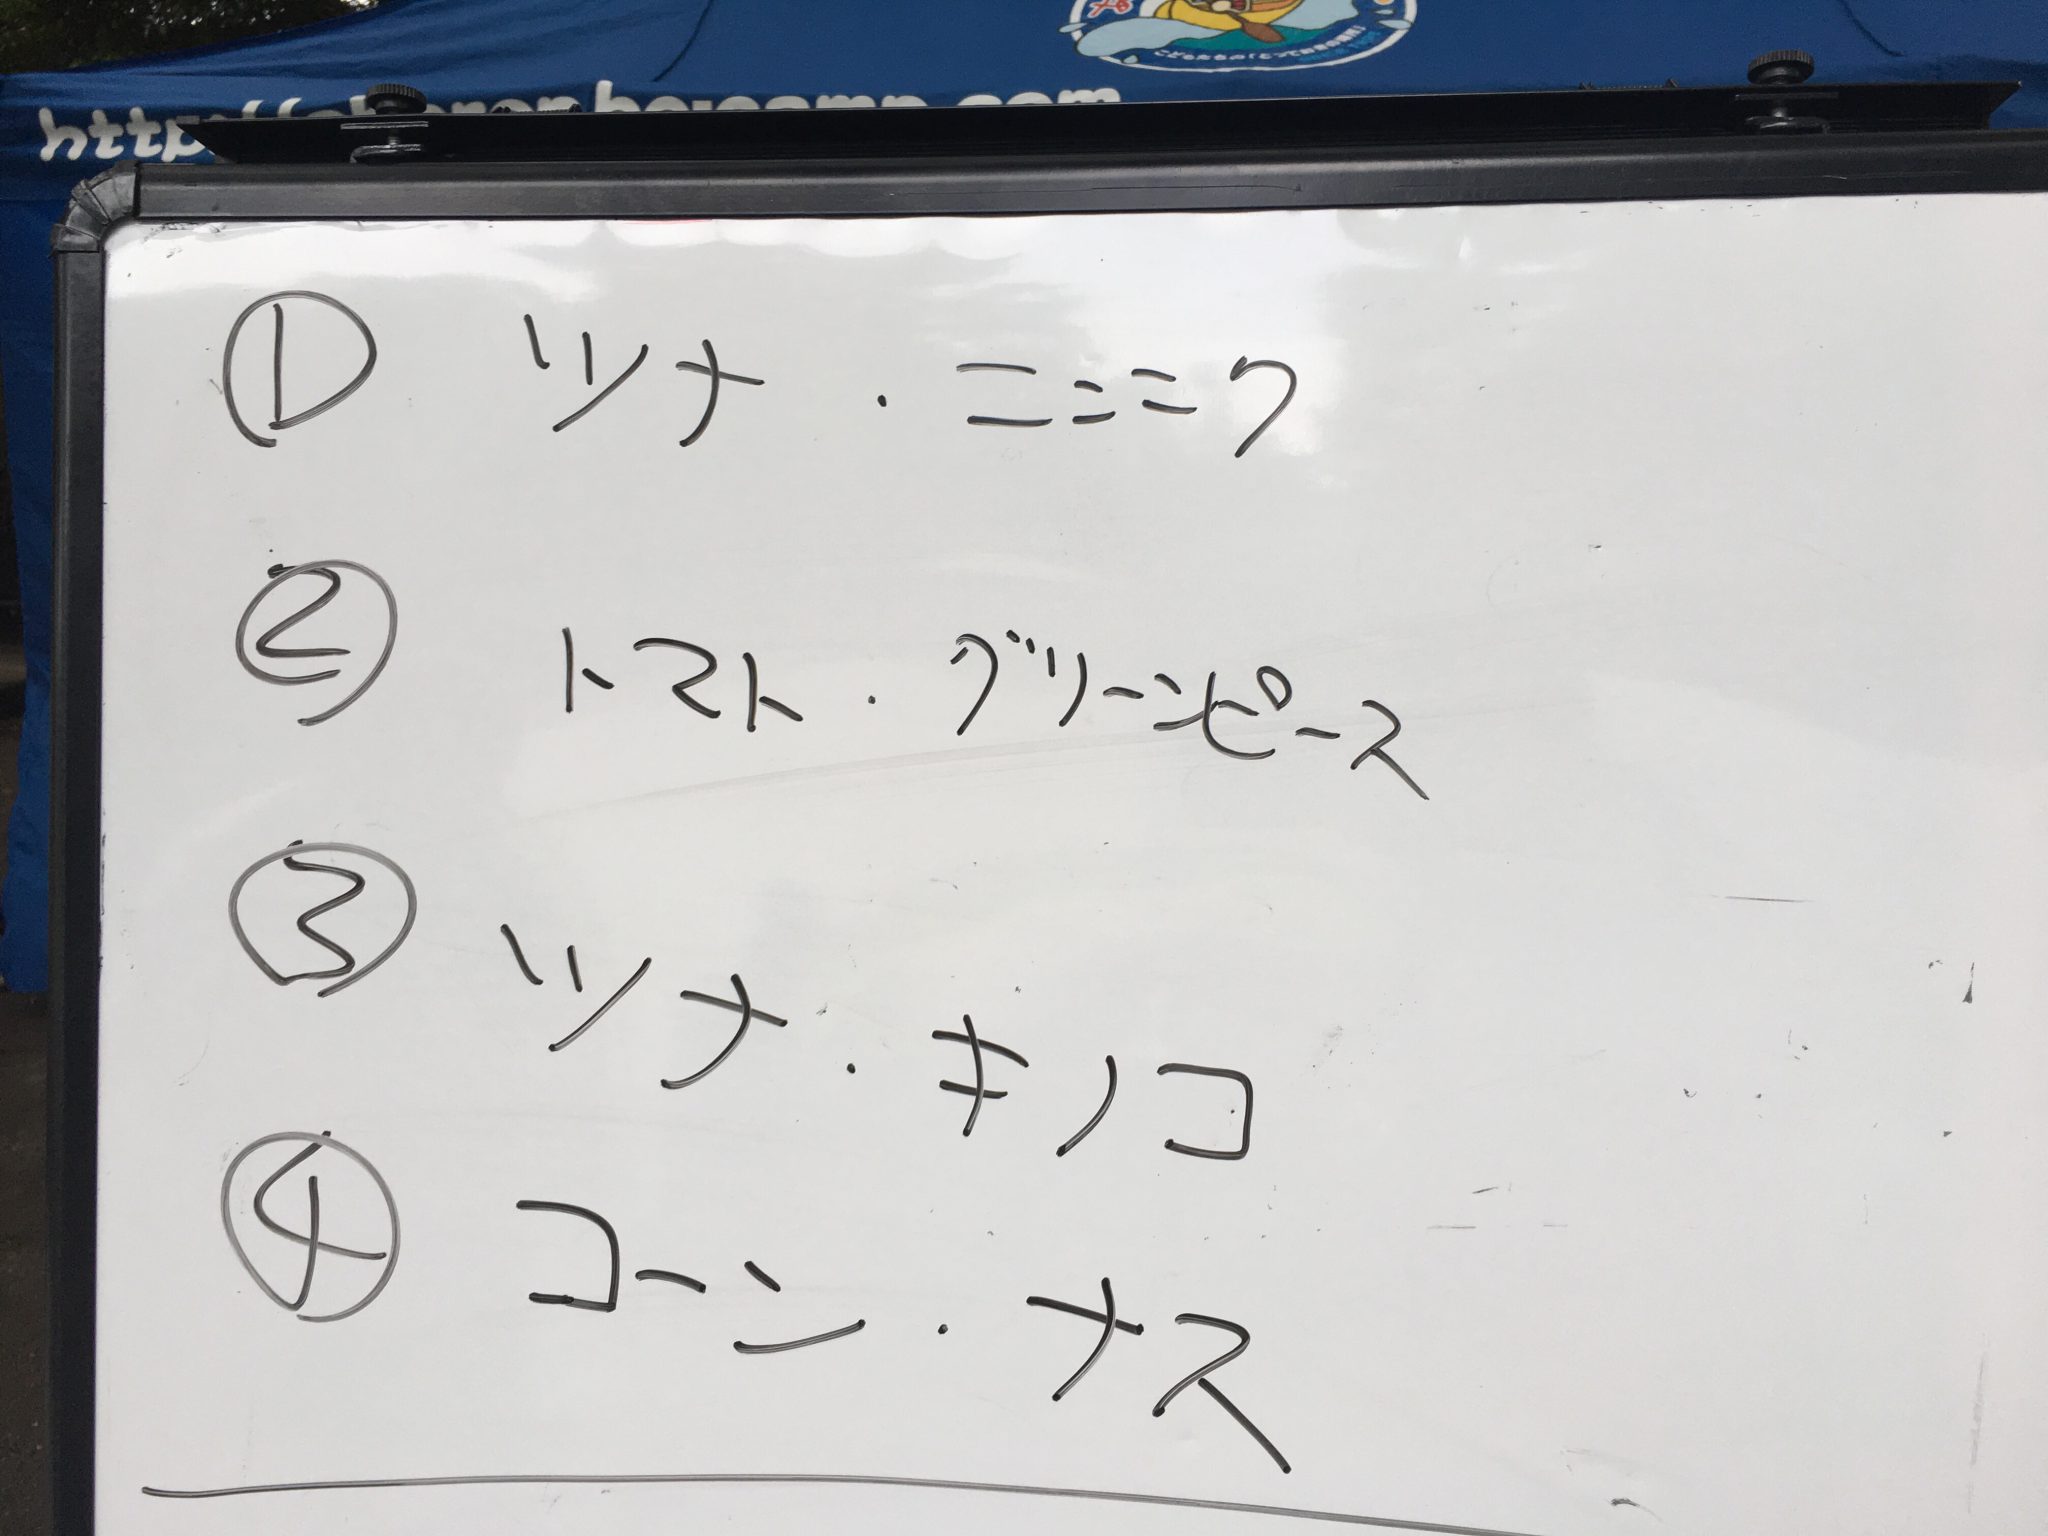 ① ツナ・ニンニク
② トマト・グリーンピース
③ ツナ・キノコ
④ コーン・ナス